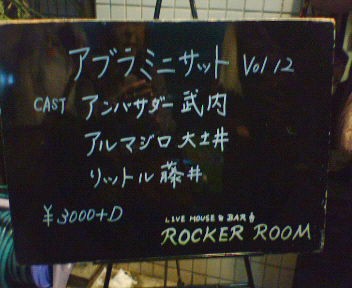 アブラミニサット Vol 12
CAST アンバサダー 武内
アルマジロ 大土井
リットル 藤井
¥3000+D
LIVE HOUSE & BAR
ROCKER ROOM